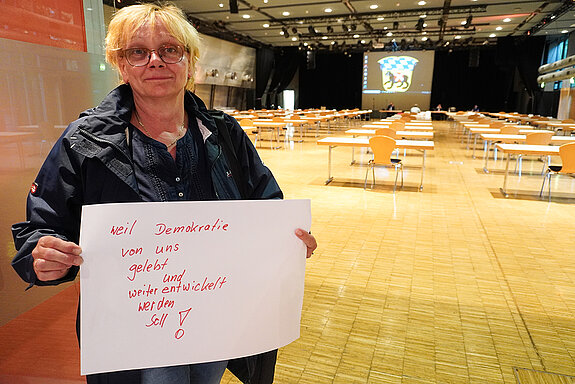 weil Demokratie
von uns
gelebt
und
weiter entwickelt
werden
soll !